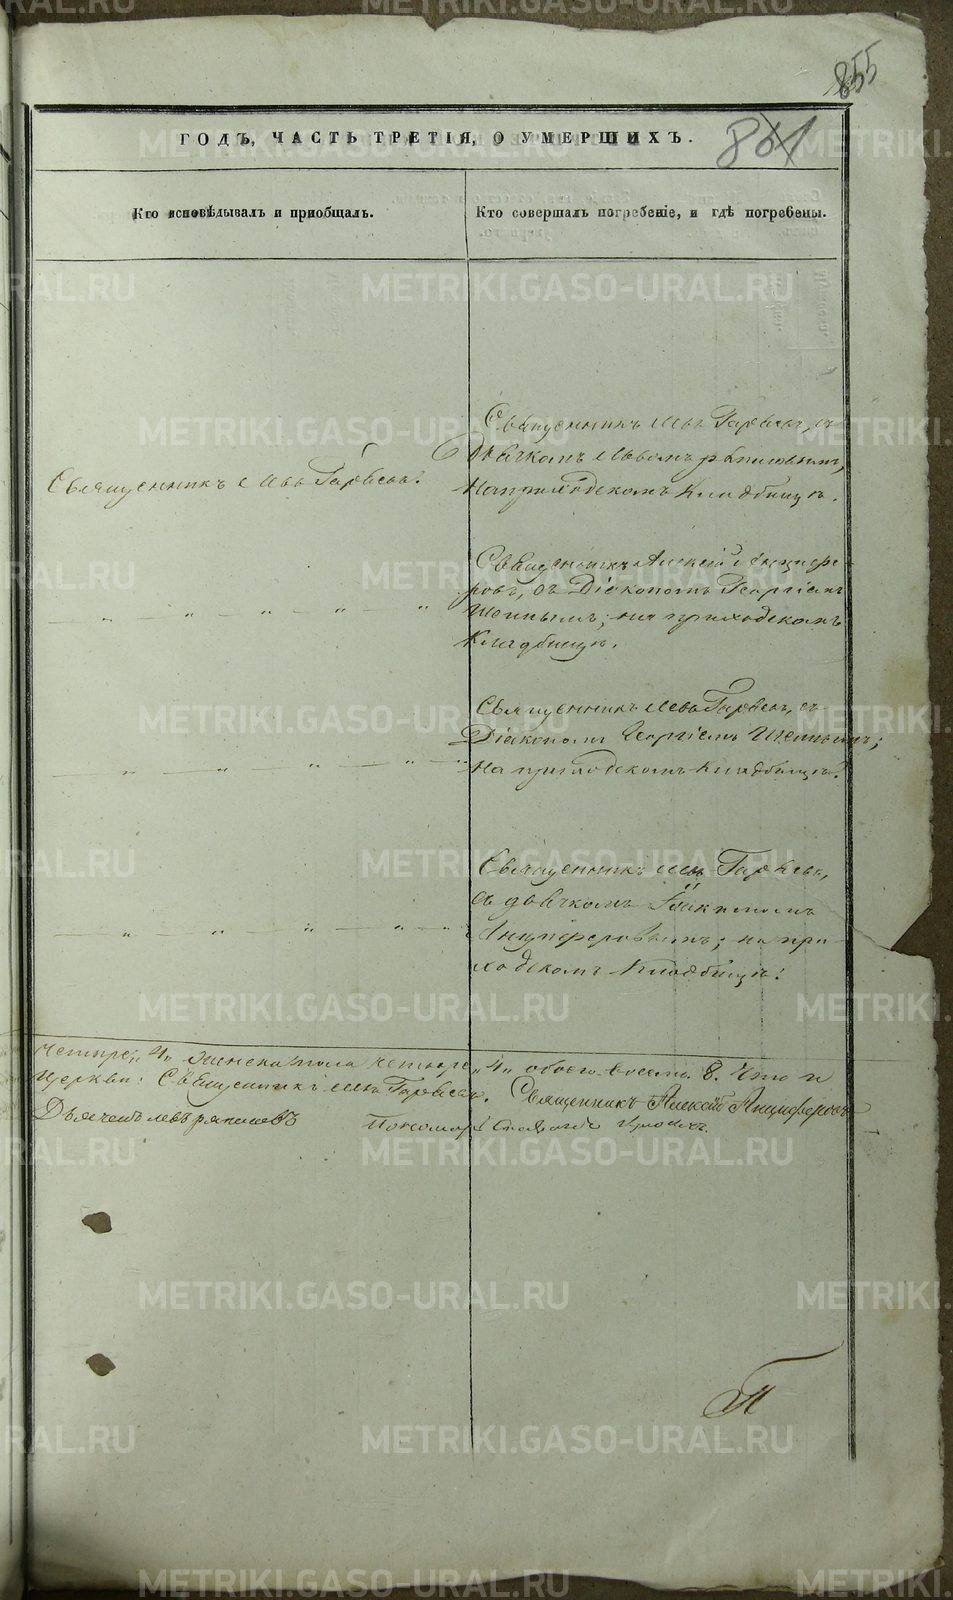 855
ГОДЪ, ЧАСТЬ ТРЕТІЯ, О УМЕРШИХЪ.
Кто исповѣдывалъ и пріобщалъ.
Кто совершалъ погребеніе, и гдѣ погребены.
Священникъ Левъ Гаряевъ.
Священникъ Левъ Гаряевъ, съ
Дьячкомъ Львомъ
на приходскомъ кладбищѣ.
Священникъ Алексій Анцыфе-
ровъ, съ Діакономъ Георгіемъ
на приходскомъ
кладбищѣ.
Священникъ Левъ Гаряевъ, съ
Діакономъ Георгіемъ
на приходскомъ кладбищѣ.
Священникъ Левъ Гаряевъ,
съ дьячкомъ
Анцыферовымъ; на при-
ходскомъ кладбищѣ.
четыре "4" женска пола четыре "4" обоего восемь 8. Что и
Церкви: Священникъ Левъ Гаряевъ. Священникъ Алексій Анцыферовъ
Дьячекъ Левъ Пономарь
METRIKI.GASO-URAL.RU